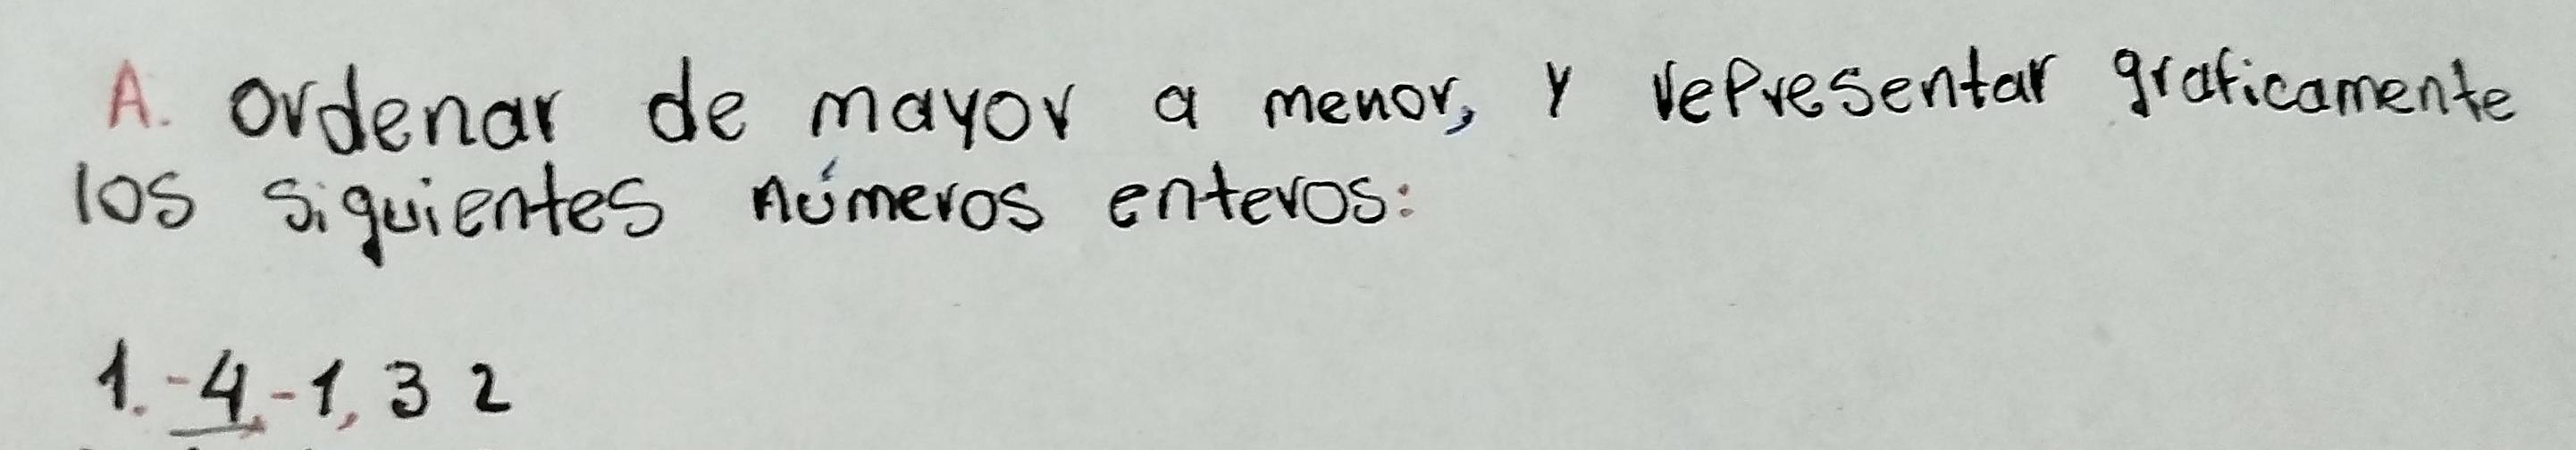 A. ordenar de mayor a menor, y representar graficamente
los siguientes números enteros:
1. -4, -1, 3 2